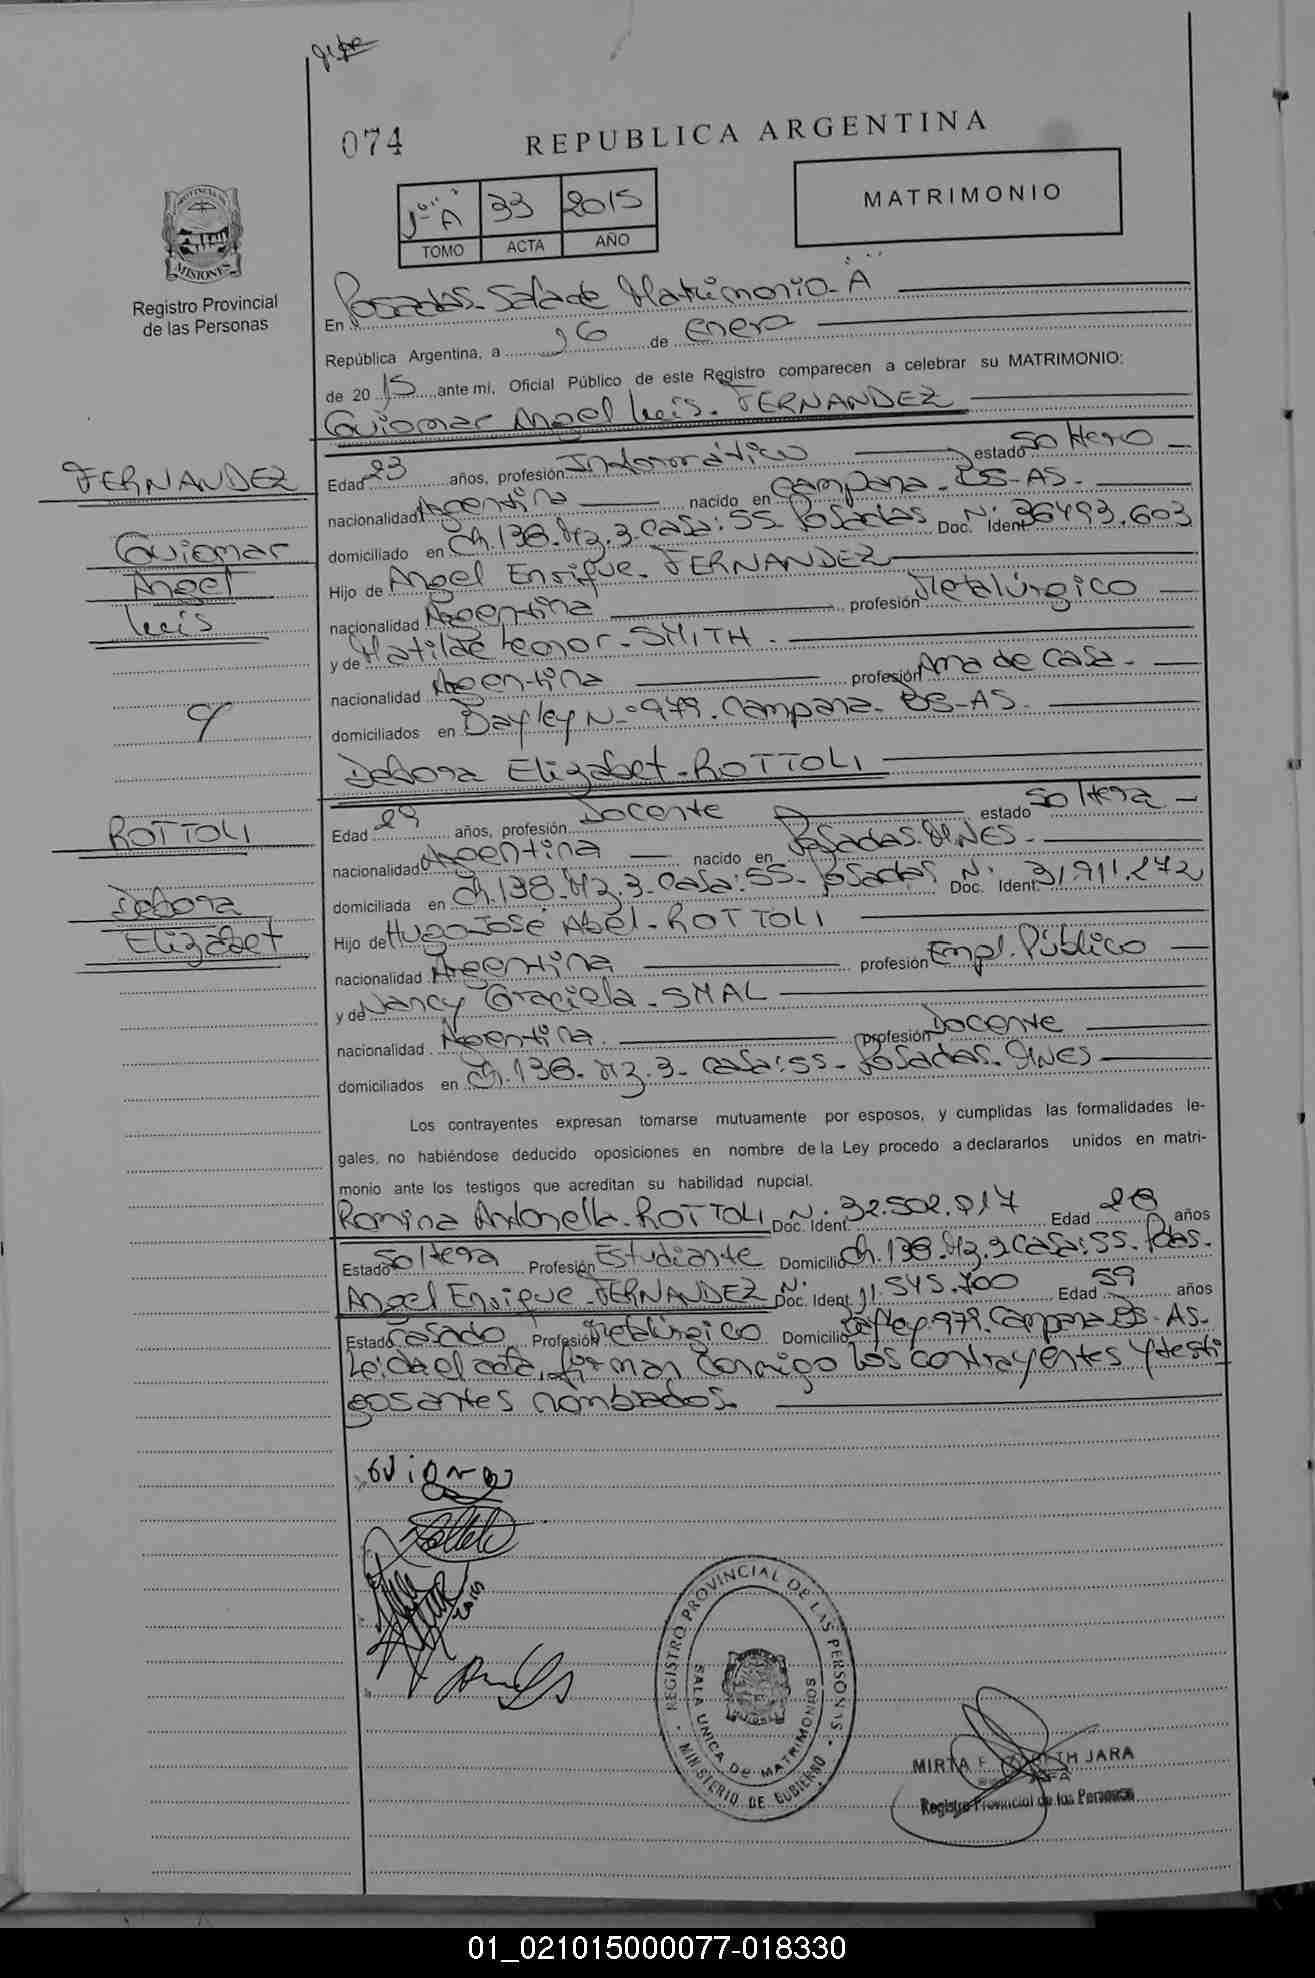 074
REPUBLICA ARGENTINA
MATRIMONIO
1º A 33 2015
TOMO ACTA AÑO
PROVINCIA DE
MISIONES
Registro Provincial
de las Personas
En Posadas - Sala de Matrimonio - A
República Argentina, a 16 de enero
de 2015 ante mi, Oficial Público de este Registro comparecen a celebrar su MATRIMONIO:
Guiomar Angel Luis - FERNANDEZ
FERNANDEZ
Guiomar
Angel
Luis
Edad 23 años, profesión Informático estado Soltero
nacionalidad Argentina nacido en Campana - BS-AS.
domiciliado en Ch. 138. Mz. 3. Casa: 55 Posadas Doc. Ident Nº 36493.603
Hijo de Angel Enrique - FERNANDEZ
nacionalidad Argentina profesión Metalúrgico
y de Matilde Leonor - SMITH.
nacionalidad Argentina profesión Ama de Casa.
domiciliados en Nº 979. Campana - BS-AS.
y
Debora Elizabet - ROTTOLI
ROTTOLI
Debora
Elizabet
Edad 29 años, profesión Docente estado Soltera
nacionalidad Argentina nacido en Posadas. MNES.
domiciliada en Ch. 138. Mz. 3. Casa: 55 - Posadas Doc. Ident Nº 31.911.272
Hijo de Hugo José Abel - ROTTOLI
nacionalidad Argentina profesión Empl. Público
y de Nancy Graciela - SMAL
nacionalidad Argentina. profesión Docente
domiciliados en Ch. 138. Mz. 3 - Casa: 55 - Posadas. MNES
Los contrayentes expresan tomarse mutuamente por esposos, y cumplidas las formalidades le-
gales, no habiéndose deducido oposiciones en nombre de la Ley procedo a declararlos unidos en matri-
monio ante los testigos que acreditan su habilidad nupcial.
Romina Antonella - ROTTOLI Doc. Ident. Nº 32.502.917 Edad 28 años
Estado Soltera Profesión Estudiante Domicilio Ch. 138. Mz. 3 Casa: 55. Pdas.
Angel Enrique - FERNANDEZ Doc. Ident. Nº 11.545.700 Edad 59 años
Estado Casado Profesión Metalúrgico Domicilio 979. Campana BS-AS.
Leida el acta, firman conmigo los contrayentes y testi
gos antes nombrados.
Guiomar
REGISTRO PROVINCIAL DE LAS PERSONAS
SALA UNICA DE MATRIMONIOS
MINISTERIO DE GOBIERNO
MIRTA JARA
Registro Provincial de las Personas
01_021015000077-018330